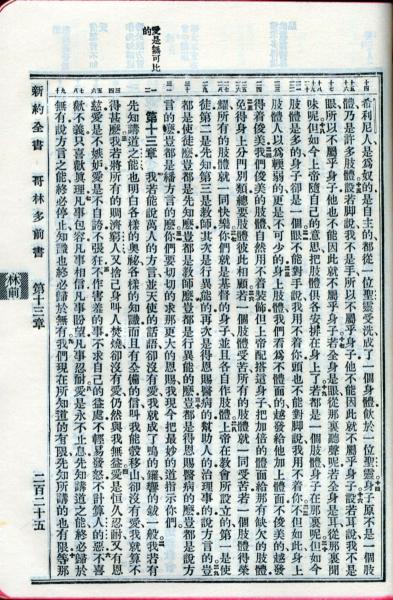 希利尼人是爲奴的是自主的都從一位聖靈受洗成了一個身體飲於一位聖靈身子原不是一個肢
體乃是許多肢體設若脚說我不是手所以不屬乎身子他不能因此就不屬乎身子設若耳說我不是
眼所以不屬乎身子他也不能因此就不屬乎身子若全身是眼從那裏聽聲呢若全身是耳從那裏聞
味呢但如今上帝隨自己的意思把肢體俱各安排在身上了若都是一個肢體身子在那裏呢但如今
肢體是多的身子卻是一個眼不能對手說我用不着你頭也不能對脚說我用不着你不但如此身上
肢體人以爲輭弱的更是不可少的身上肢體我們看爲不體面的越發給他加上體面不俊美的越發
得着俊美我們俊美的肢體自然用不着裝飾但上帝配搭這身子把加倍的體面給那有缺欠的肢體
免得身上分門別類總要肢體彼此相顧若一個肢體受苦所有的肢體就一同受苦若一個肢體得榮
耀所有的肢體就一同快樂你們就是基督的身子並且各自作肢體上帝在教會所設立的第一是使
徒第二是先知第三是教師其次是行異能的再次是得恩賜醫病的幫助人的治理事的說方言的豈
都是使徒麽豈都是先知麽豈都是教師麽豈都是行異能的麽豈都是得恩賜醫病的麽豈都是說方
言的麽豈都是繙方言的麽你們要切切的求那更大的恩賜我現今把最妙的道指示你們
愛是無可比的
第十三章 我若能說萬人的方言並天使的話語卻沒有愛我就成了鳴的鑼響的鈸一般我若有
先知講道之能也明白各樣的奧祕各樣的知識而且有全備的信叫我能彀移山卻沒有愛我就算不
得甚麽我若將所有的賙濟窮人又捨己身叫人焚燒卻沒有愛仍然與我無益愛是恒久忍耐又有恩
慈愛是不嫉妒愛是不自誇不張狂不作害羞的事不求自己的益處不輕易發怒不計算人的惡不喜
歡不義只喜歡眞理凡事包容凡事相信凡事盼望凡事忍耐愛是永不止息先知講道之能終必歸於
無有說方言之能終必停止知識也終必歸於無有我們現在所知道的有限先知所講的也有限等那
新約全書 哥林多前書 第十三章 二百二十五
林前